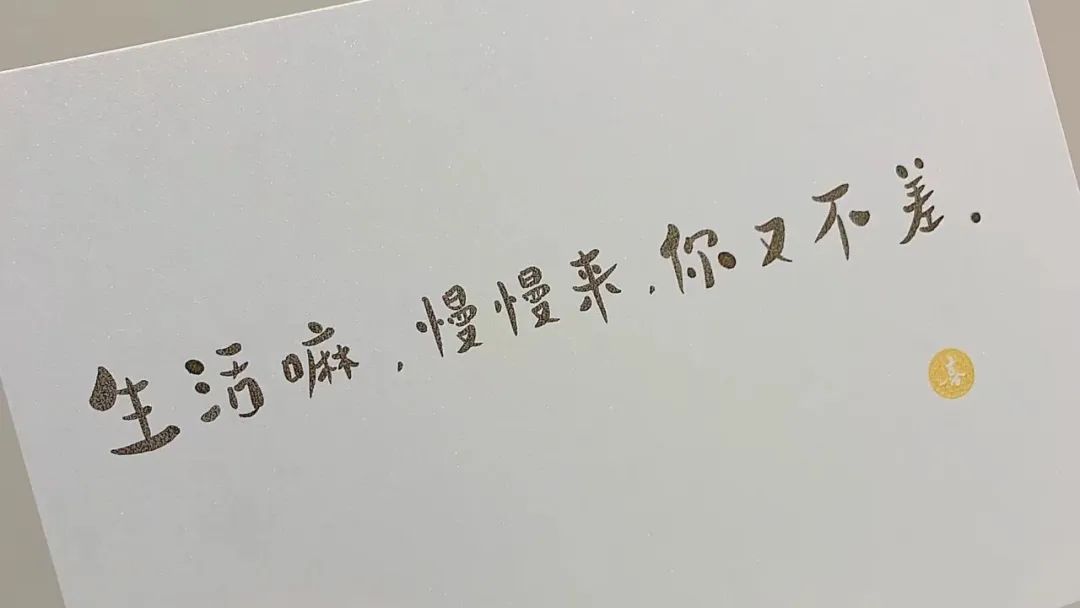 生活嘛，慢慢来，你又不差.
喜